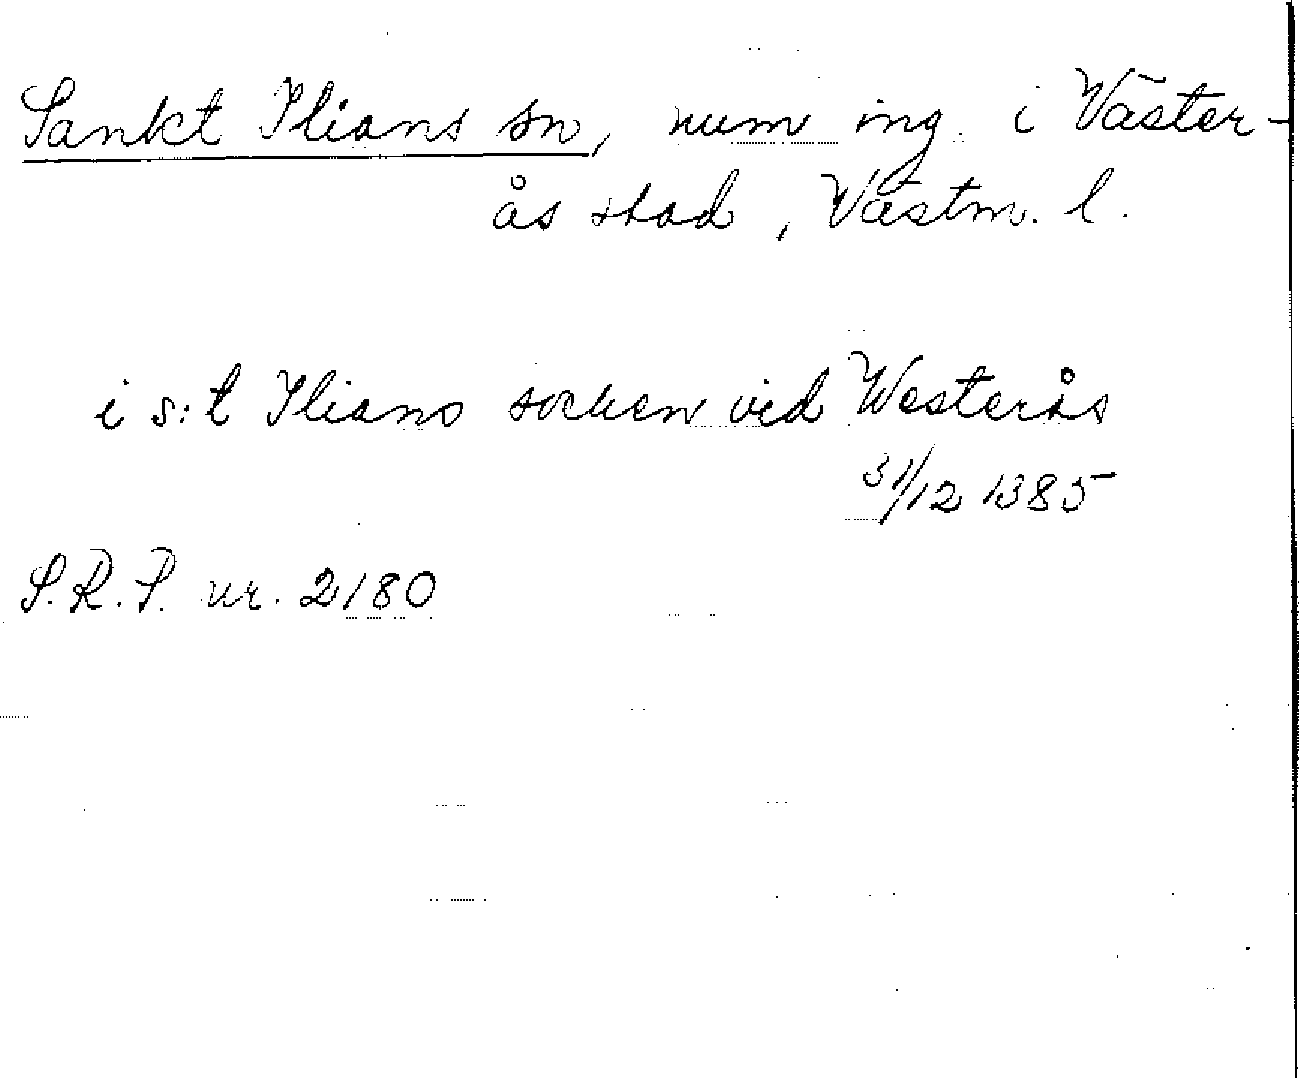 Sankt Ilians sn, num ing. i Väster-
ås stad, Västm. l.
i s:t Ilians socken vid Westerås
31/12 1385
S.R.P. nr. 2180